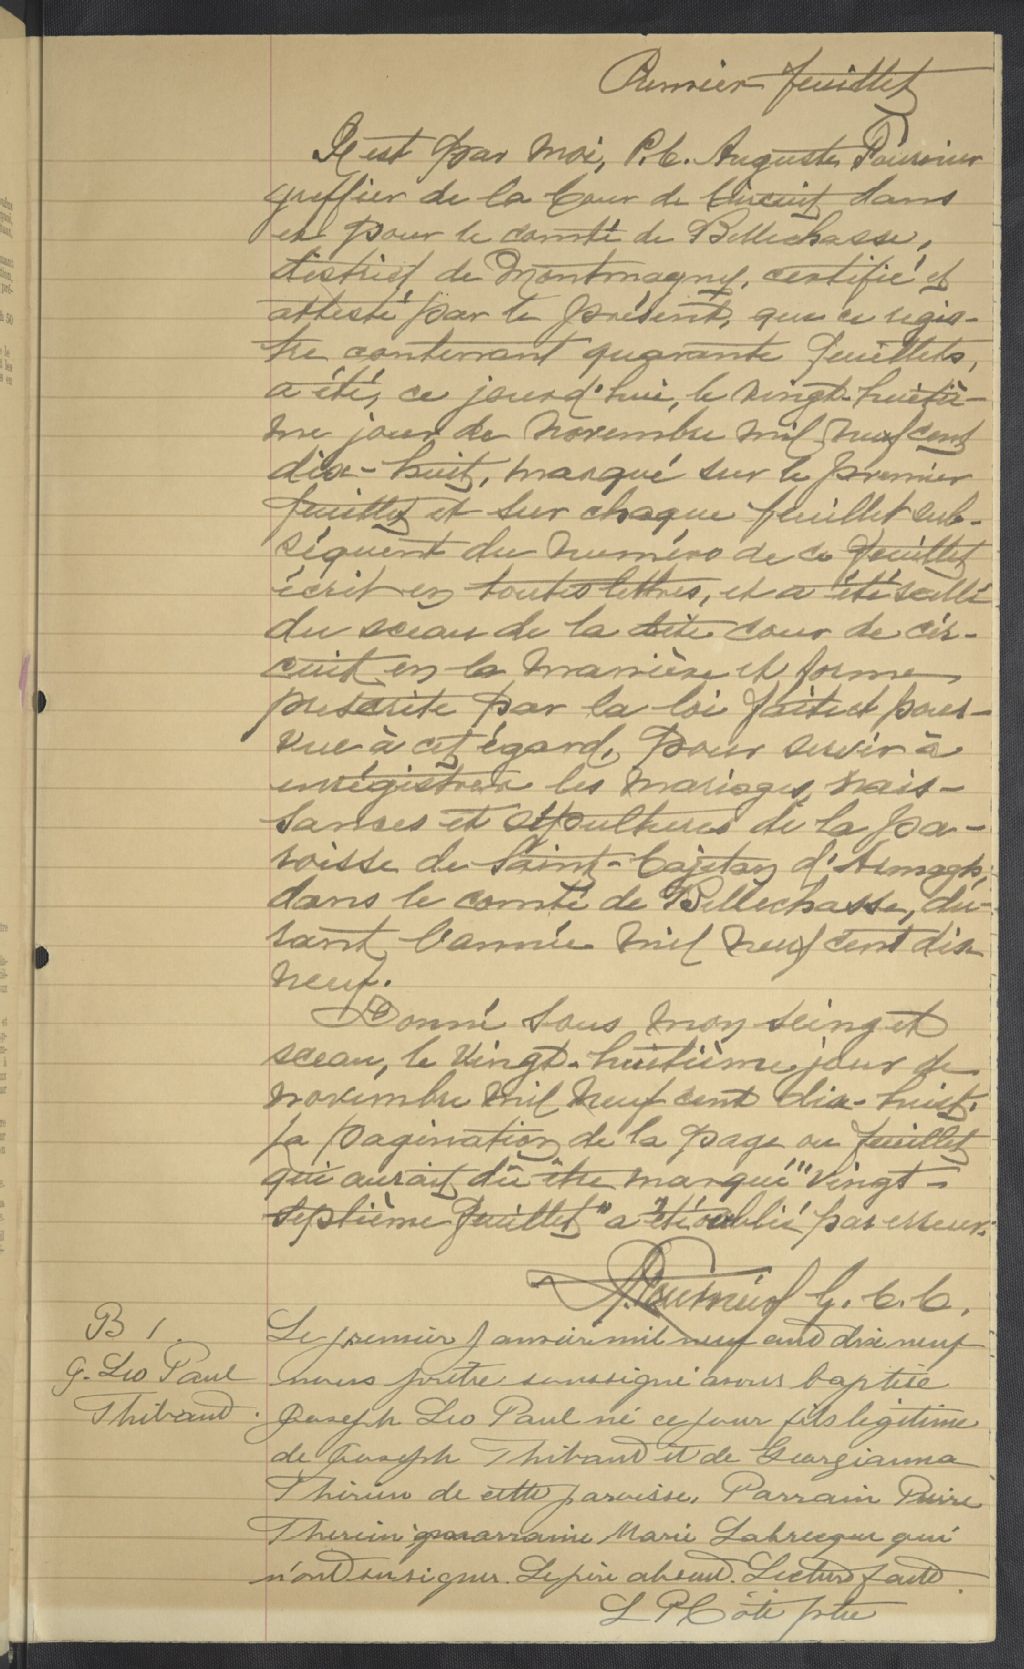 Premier feuillet
Il est par moi, P. C. Auguste Fournier
greffier de la Cour de Circuit dans
et pour le comté de Bellechasse,
district de Montmagny, certifié et
attesté par le présent, que ce regis-
tre contenant quarante feuillets,
a été, ce jourd'hui, le vingt-huitiè-
me jour de novembre mil neuf cent
dix-huit, marqué sur le premier
feuillet et sur chaque feuillet sub-
séquent du numéro de ce feuillet
écrit en toutes lettres, et a été scellé
du sceau de la dite cour de cir-
cuit en la manière et forme
prescrite par la loi faite et pour-
vue à cet égard, pour servir à
enrégistrer les mariages, nais-
sances et sépultures de la pa-
roisse de Saint-Cajetan d'Armagh,
dans le comté de Bellechasse, du-
rant l'année mil neuf cent dix
neuf.
Donné sous mon seing et
sceau, le vingt-huitième jour de
novembre mil neuf cent dix-huit.
La pagination de la page ou feuillet
qui aurait dû être marqué "vingt-
septième feuillet" a été oublié par erreur.
A. Fournier G. C. C.
B 1.
J. Leo Paul
Thibaud.
Le premier janvier mil neuf cent dix neuf
nous prêtre soussigné avons baptisé
Joseph Leo Paul né ce jour fils légitime
de Joseph Thibaud et de Georgianna
Thérien de cette paroisse. Parrain Pierre
Therien marraine Marie Labrecque qui
n'ont su signer. Le père absent. Lecture faite.
L P Côté ptre